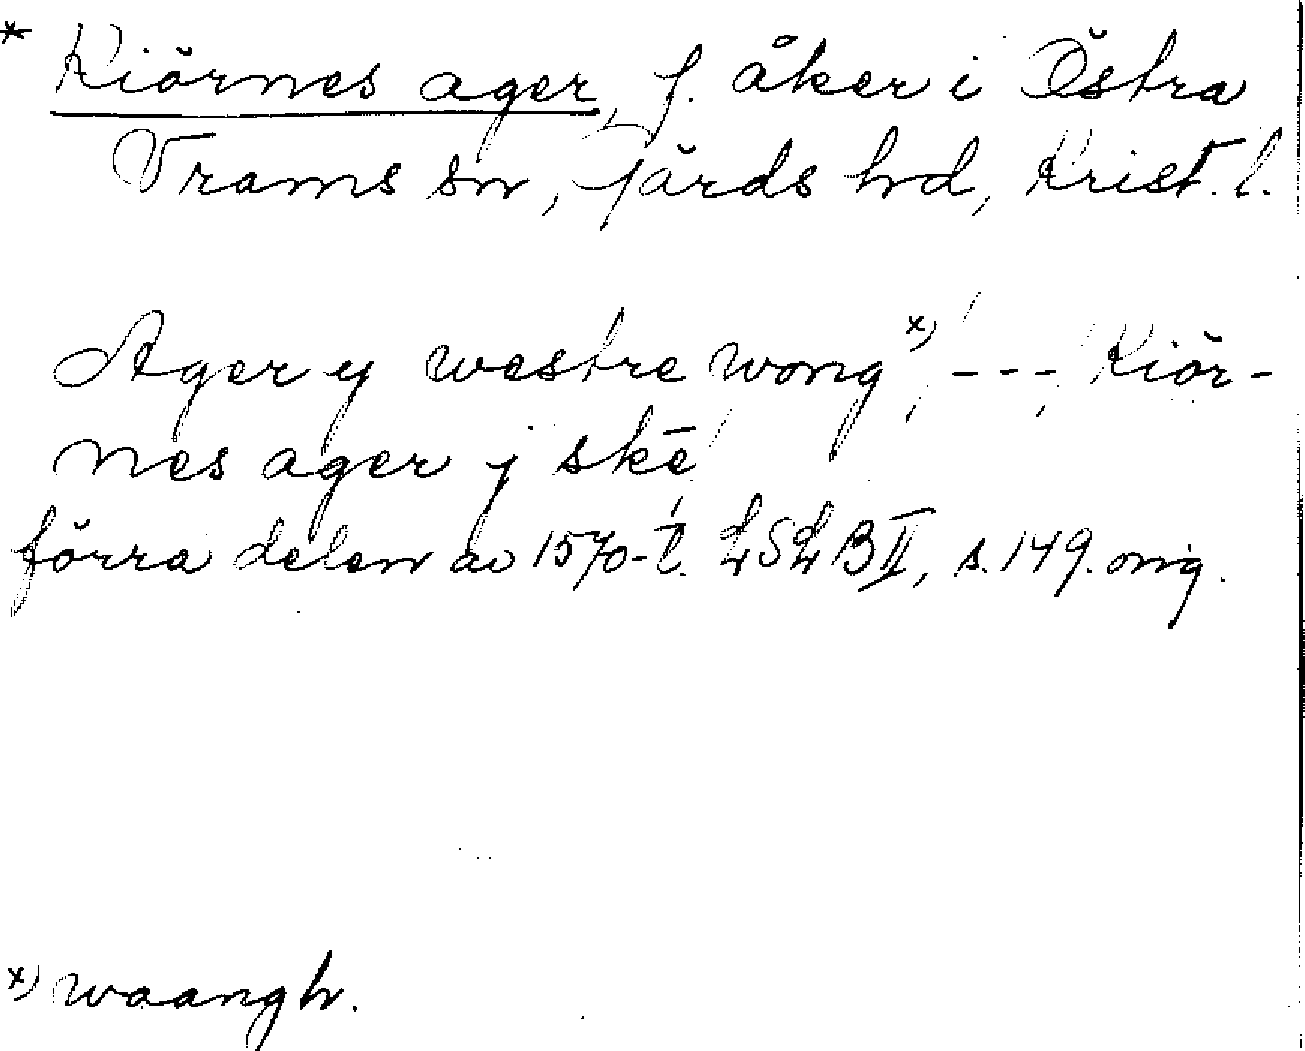 * Kiörnes ager, f. åker i Östra
Vrams sn, Gärds hd, Krist. l.
Ager y westre wong x), --- , Kiör-
nes ager j skē
förra delen av 1570-t. LSLB II, s. 149. orig.
x) waangh.